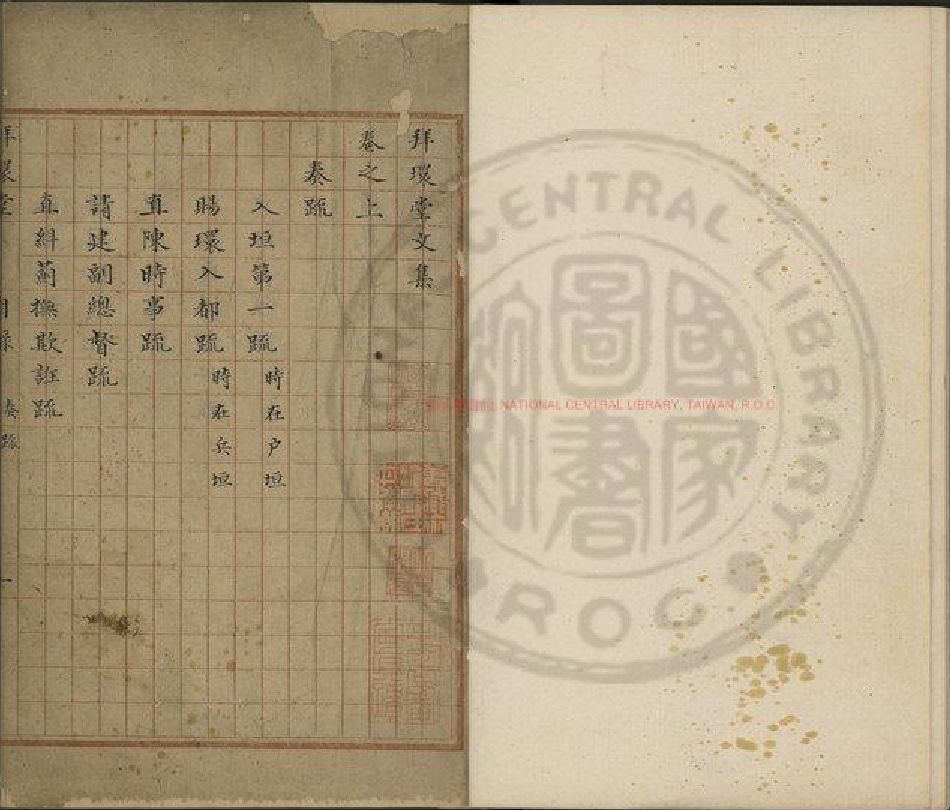 拜環堂文集
卷之上
奏疏
入垣第一疏 時在户垣
賜環入都疏 時在兵垣
直陳時事疏
請建副總督疏
直糾薊撫欺誑疏
拜環堂 目錄 奏疏 一
CENTRAL LIBRARY
ROC
國家圖書
NATIONAL CENTRAL LIBRARY, TAIWAN, R.O.C